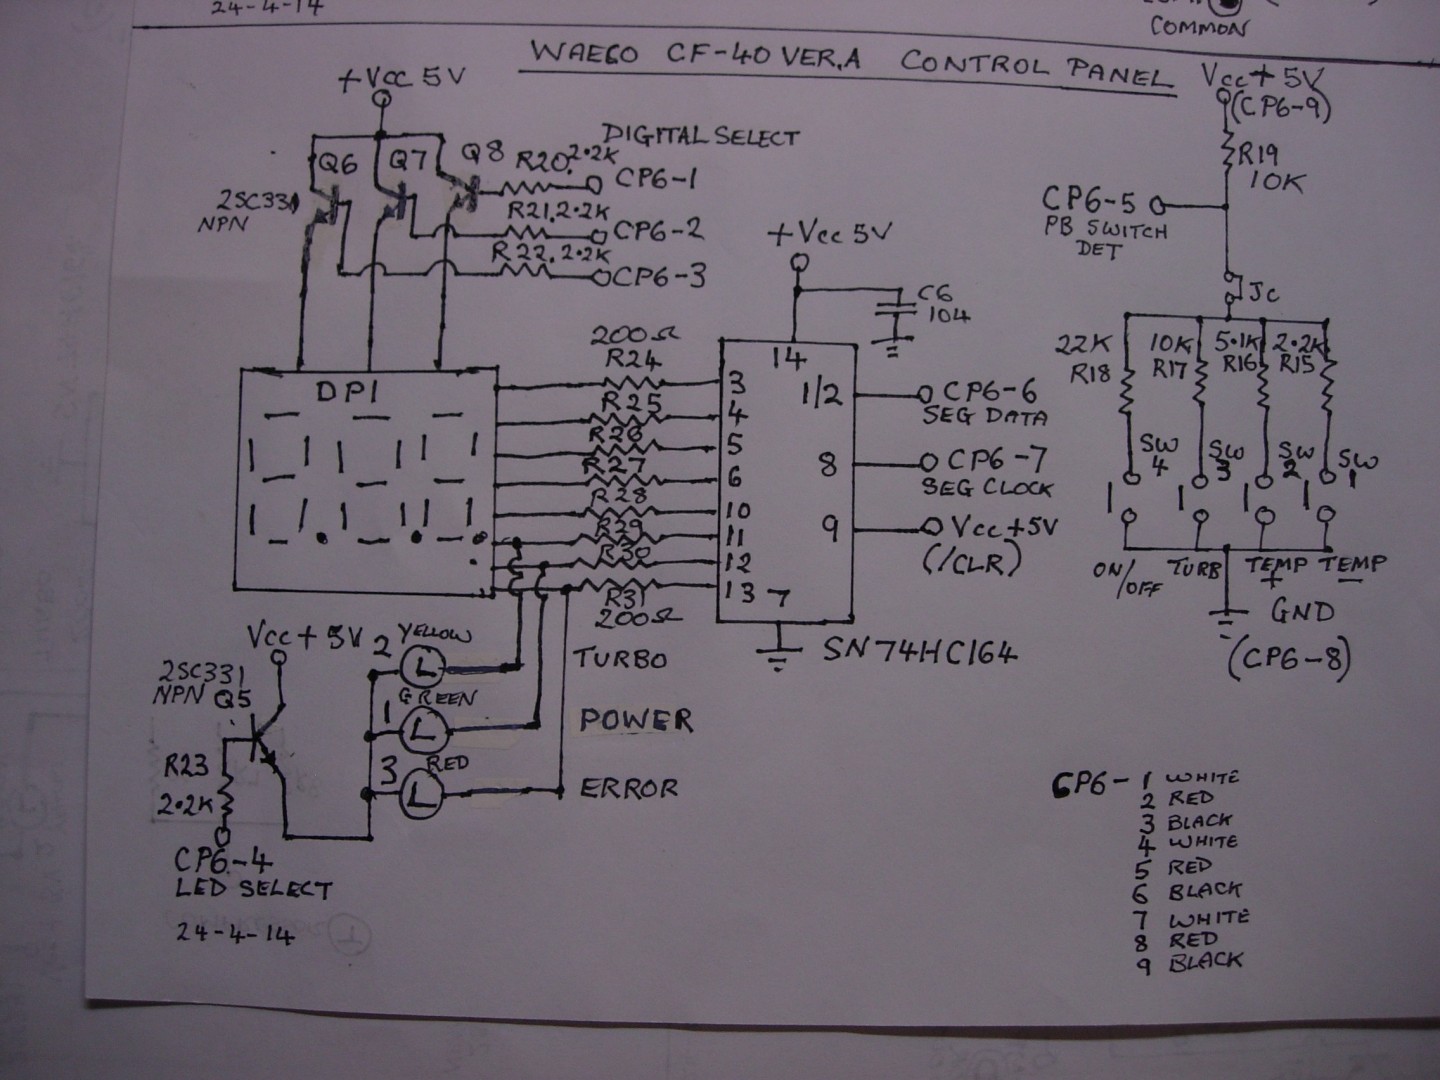 24-4-14
COMMON
WAECO CF-40 VER.A CONTROL PANEL
+Vcc 5V
Vcc + 5V
(CP6-9)
DIGITAL SELECT
Q6
Q7
Q8
R20 2.2K
CP6-1
2SC331
NPN
R21, 2.2K
CP6-2
R22, 2.2K
CP6-3
R19
10K
CP6-5
PB SWITCH
DET
JC
+Vcc 5V
C6
104
200Ω
R24
R25
R26
R27
R28
R29
R30
R31
200Ω
DP1
14
3
4
5
6
10
11
12
13
7
1/2
8
9
CP6-6
SEG DATA
CP6-7
SEG CLOCK
Vcc +5V
(/CLR)
SN74HC164
22K
R18
10K
R17
5.1K
R16
2.2K
R15
SW
4
SW
3
SW
2
SW
1
ON/OFF
TURB
TEMP
+
TEMP
−
GND
(CP6-8)
Vcc + 5V
2SC331
NPN Q5
R23
2.2K
CP6-4
LED SELECT
24-4-14
2 YELLOW
L
TURBO
GREEN
1 L
POWER
RED
3 L
ERROR
CP6- 1 WHITE
2 RED
3 BLACK
4 WHITE
5 RED
6 BLACK
7 WHITE
8 RED
9 BLACK